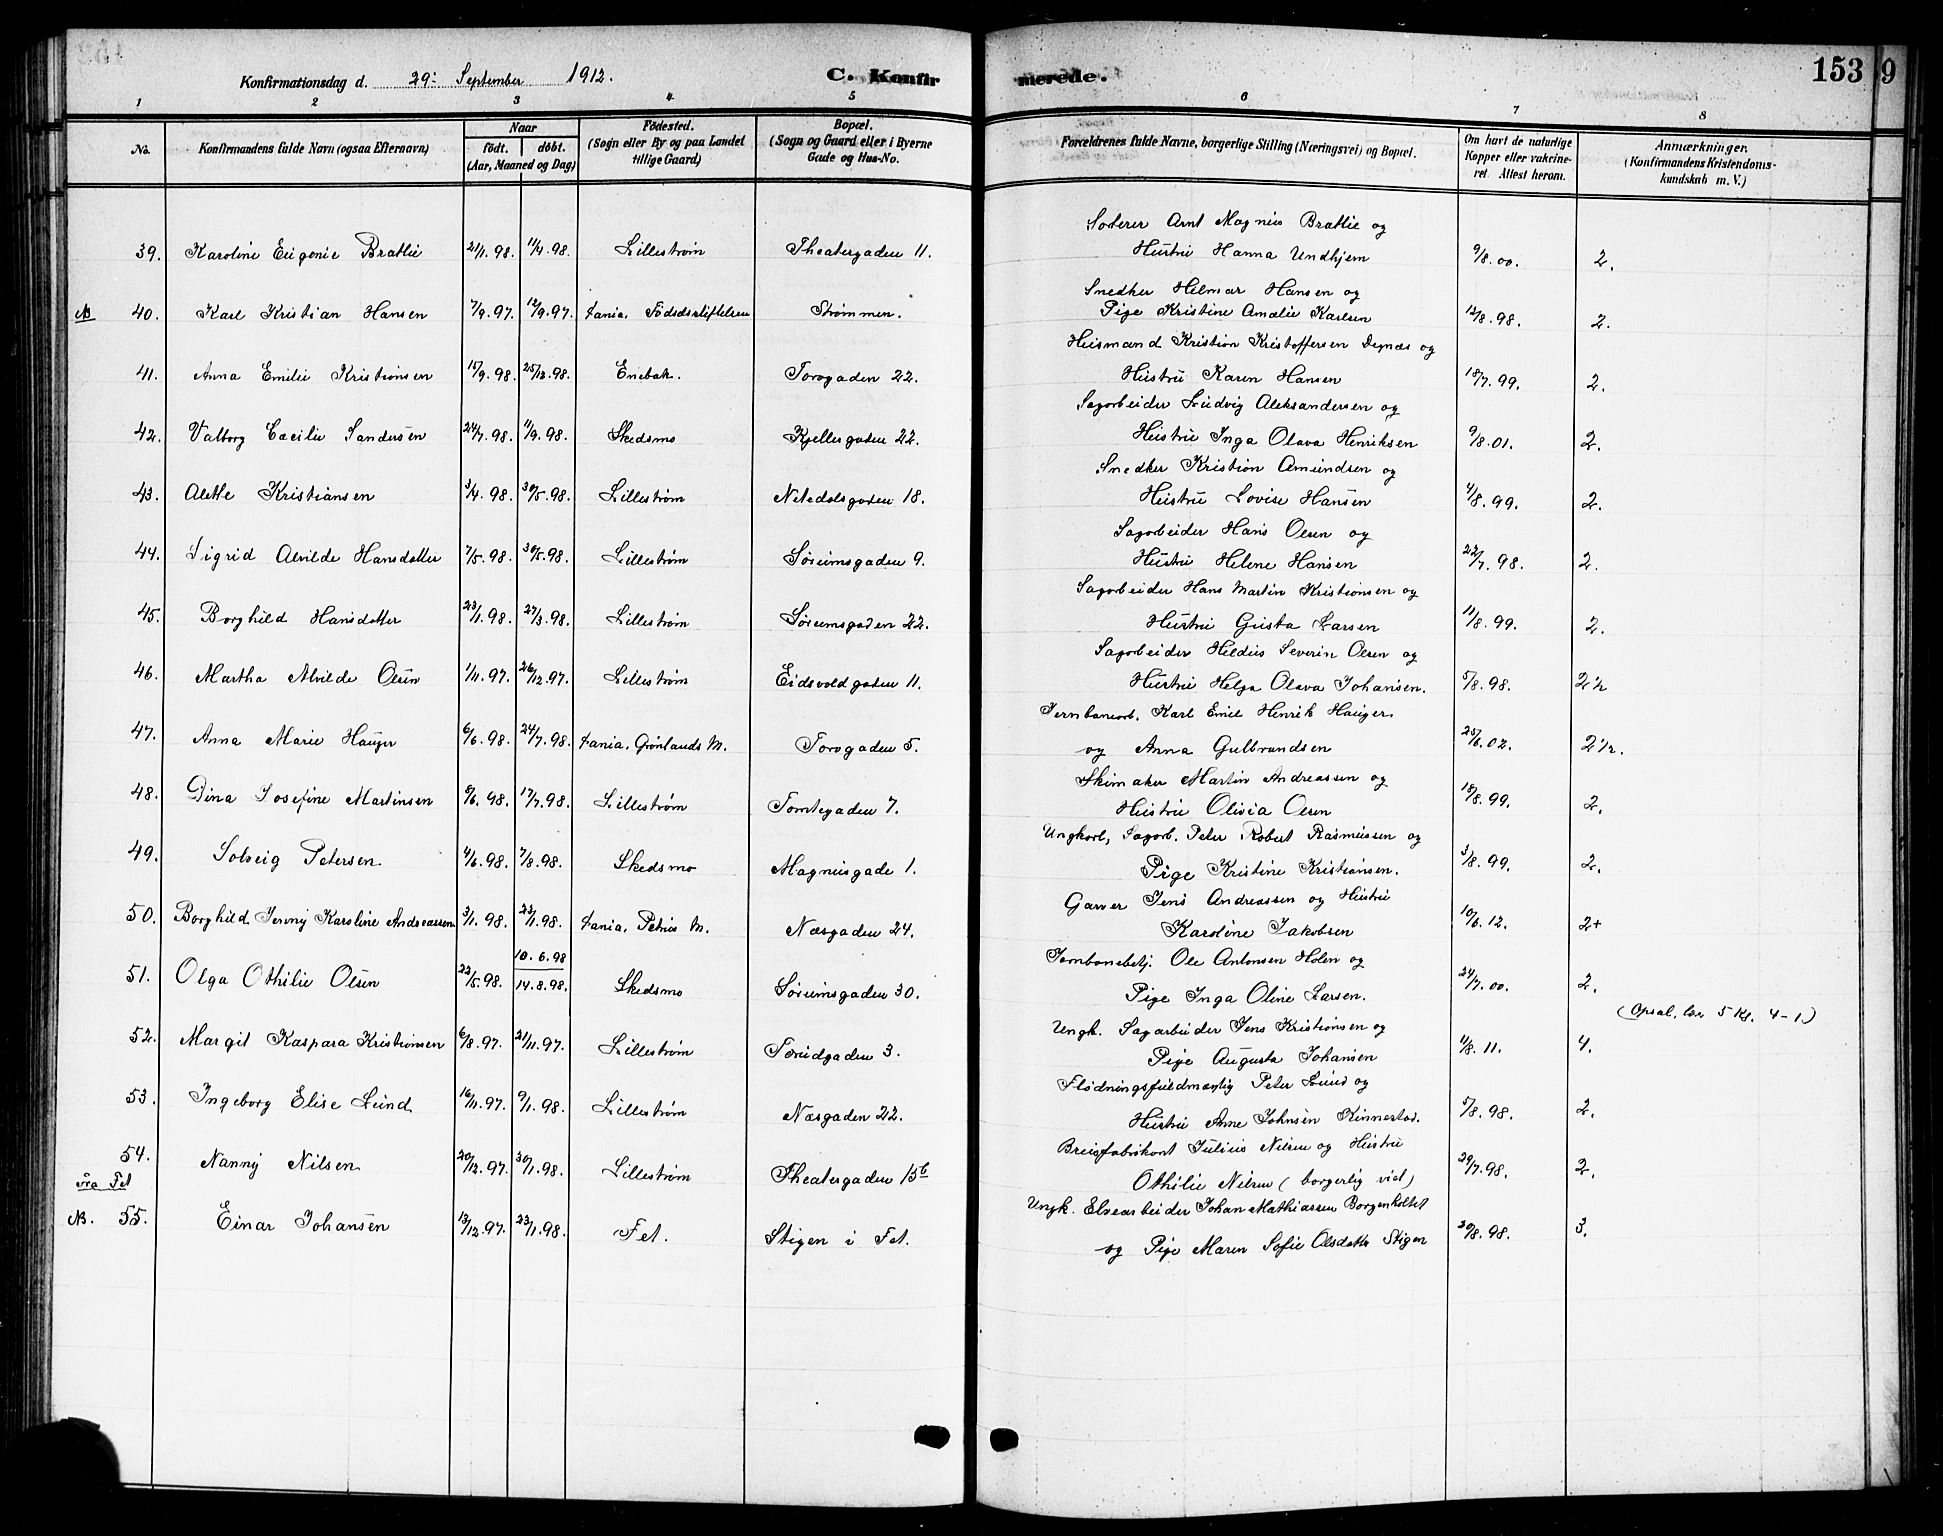 153 9
Konfirmationsdag d. 29. September 1912. C. Konfirmerede.
1 2 3 4 5 6 7 8
No. Konfirmandens fulde Navn (ogsaa Efternavn) Naar födt. döbt. (Aar, Maaned og Dag) Födested. (Sogn eller By og paa Landet tillige Gaard) Bopæl. (Sogn og Gaard eller i Byerne Gade og Hus-No. Forældrenes fulde Navne, borgerlige Stilling (Næringsvei) og Bopæl. Om havt de naturlige Kopper eller vakcineret. Attest herom. Anmærkninger. (Konfirmandens Kristendomskundskab m. V.)
Sorterer Arnt Magnus Brattlie og
39. Karoline Eugenie Brattlie 21/1.98. 11/4.98. Lillestrøm Theatergaden 11. Hustru Hanna Undhjem 9/8.00. 2.
Snedker Helmar Hansen og
N 40. Karl Kristian Hansen 7/9.97. 12/9.97. Kania. Födselsstiftelsen Strømmen. Pige Kristine Amalie Karlsen 12/8.98. 2.
Husmand Kristian Kristoffersen Degnæs og
41. Anna Emilie Kristiansen 15/9.98. 25/12.98. Enebak. Torvgaden 22. Hustru Karen Hansen 18/7.99. 2.
Sagarbeider Ludvig Aleksandersen og
42. Valborg Cæcilie Sandersen 24/7.98. 11/9.98. Skedsmo Kjellergaden 22. Hustru Inga Olava Henriksen 9/8.01. 2.
Snedker Kristian Amundsen og
43. Alette Kristiansen 3/4.98. 30/5.98. Lillestrøm Nitedalsgaden 18. Hustru Lovise Hansen 4/8.99. 2.
Sagarbeider Hans Olsen og
44. Sigrid Alvilde Hansdatter 7/5.98. 30/5.98. Lillestrøm Sørumsgaden 9. Hustru Helene Hansen 22/7.98. 2.
Sagarbeider Hans Martin Kristiansen og
45. Borghild Hansdatter 23/1.98. 27/3.98. Lillestrøm Sørumsgaden 22. Hustru Gusta Larsen 11/8.99. 2.
Sagarbeider Hildius Severin Olsen og
46. Martha Alvilde Olsen 1/11.97. 26/12.97. Lillestrøm Eidsvoldgaden 11. Hustru Helga Olava Johansen. 5/8.98. 2½
Jernbanearb. Karl Emil Henrik Hauger
47. Anna Marie Hauger 6/6.98. 24/7.98. Kania. Grönlands M. Torvgaden 5. og Anna Gulbrandsen 25/6.02. 2½.
Skomaker Martin Andreassen og
48. Dina Josefine Martinsen 8/6.98. 17/7.98. Lillestrøm Tomtegaden 7. Hustru Olivia Olsen 15/8.99. 2.
Ungkarl, Sagarb. Peter Robert Rasmussen og
49. Solveig Petersen 4/6.98. 7/8.98. Skedsmo Magnusgade 1. Pige Kristine Kristiansen. 3/8.99. 2.
Garver Jens Andreassen og Hustru
50. Borghild Jenny Karoline Andreassen 3/1.98. 23/1.98. Kania, Petrus M. Næsgaden 24. Karoline Jakobsen 10/6.12. 2+
10.6.98 Jernbanebetj. Ole Antonsen Holen og
51. Olga Othilie Olsen 22/5.98. 14.8.98. Skedsmo Sørumsgaden 30. Pige Inga Oline Larsen. 24/7.00. 2.
Ungk. Sagarbeider Jens Kristiansen og (Opsat. 5 Kl. 4-1.)
52. Margit Kaspara Kristiansen 6/8.97. 21/11.97. Lillestrøm Torvdgaden 3. Pige Augusta Johansen 11/8.11. 4.
Flødningsfuldmægtig Peter Lund og
53. Ingeborg Elise Lund 16/11.97. 9/1.98. Lillestrøm Næsgaden 22. Hustru Anne Johnsen Kinnestad. 5/8.98. 2.
Brusfabrikant Julius Nilsen og Hustru
54. Nanny Nilsen 20/12.97. 30/1.98. Lillestrøm Theatergaden 15b Othilie Nilsen (borgerlig vied) 29/7.98. 2.
Fra Fet Ungk. Elvearbeider Johan Mathiassen Borgenholtet
N. 55. Einar Johansen 13/12.97. 23/1.98. Fet. Stigen i Fet. og Pige Maren Sofie Olsdatter Stigen 20/8.98. 3.